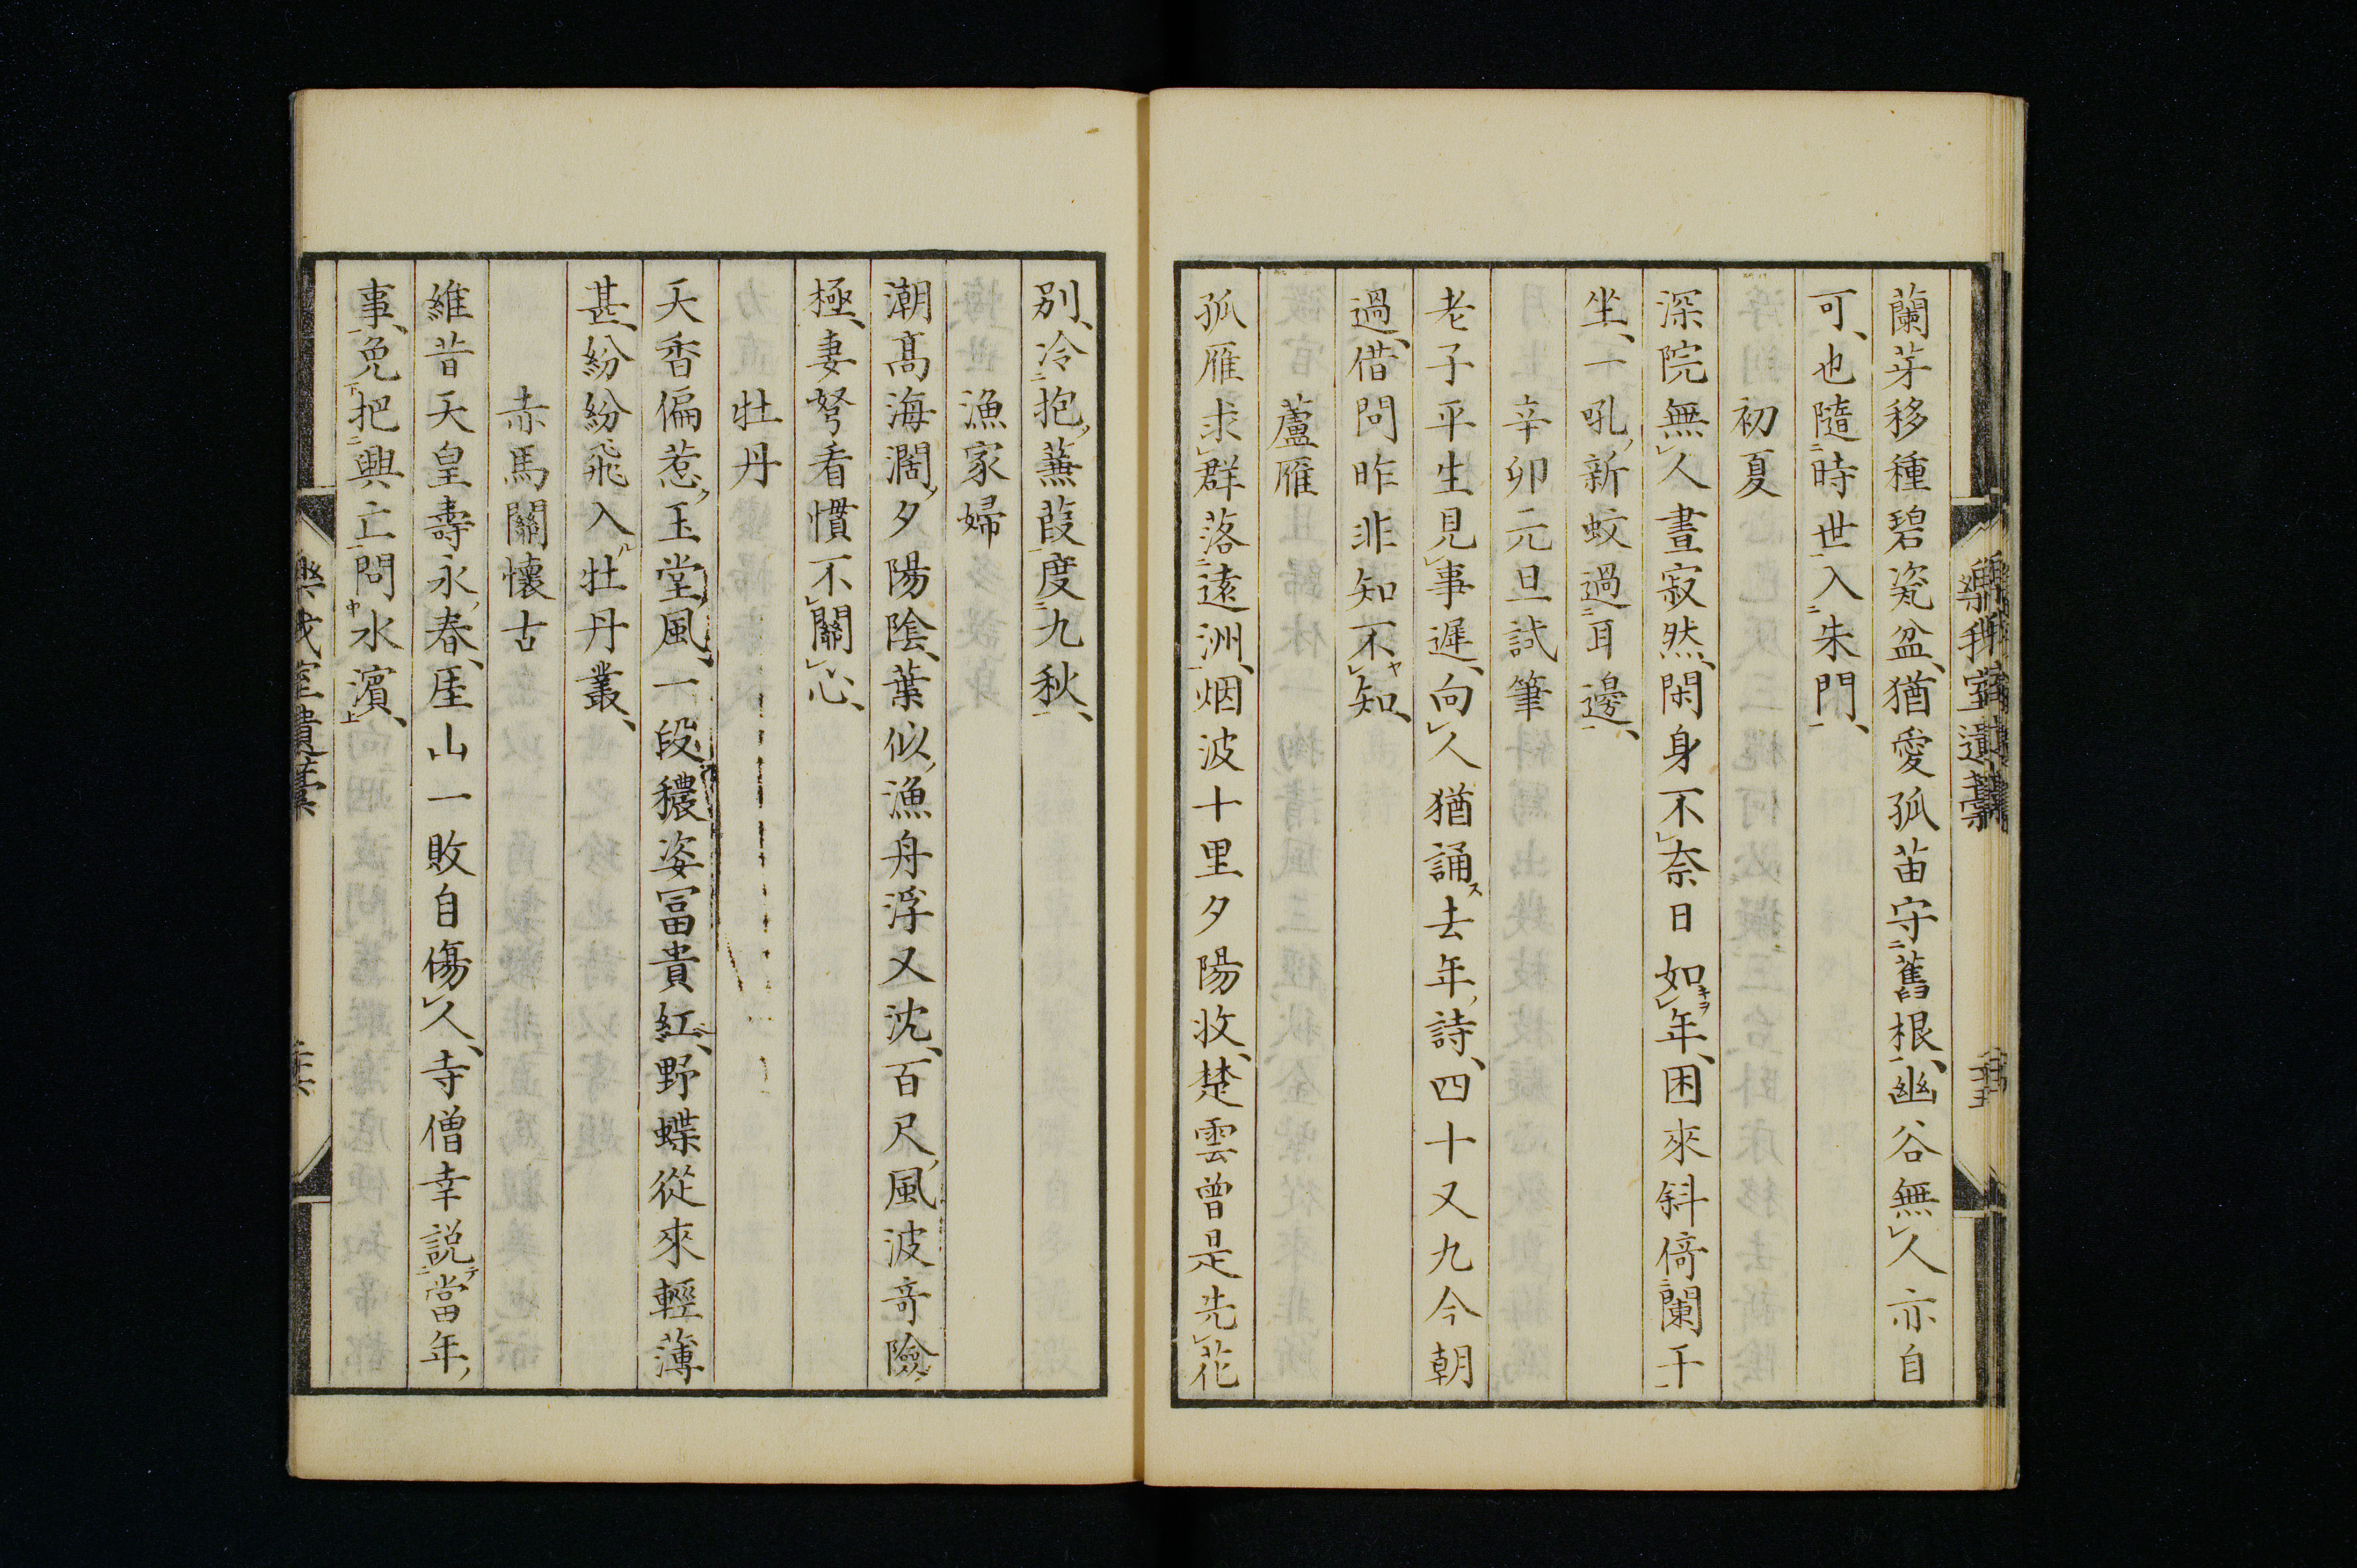 蘭芽移種碧瓷盆、猶愛孤苗守舊根、幽谷無人亦自
可、也隨時世入朱門、
初夏
深院無人晝寂然、閑身不奈日如年、困來斜倚闌干
坐、一吼新蚊過耳邊、
辛卯元旦試筆
老子平生見事遲、向人猶誦去年詩、四十又九今朝
過、借問昨非知不知、
蘆雁
孤雁求群落遠洲、烟波十里夕陽收、楚雲曾是先花
別、冷抱蒹葭度九秋、
漁家婦
潮高海濶夕陽陰、葉似漁舟浮又沈、百尺風波奇險
極、妻孥看慣不關心、
牡丹
天香偏惹玉堂風、一段穠姿冨貴紅、野蝶從來輕薄
甚、紛紛飛入牡丹叢、
赤馬關懷古
維昔天皇壽永春、厓山一敗自傷人、寺僧幸説當年
事、免把興亡問水濱、